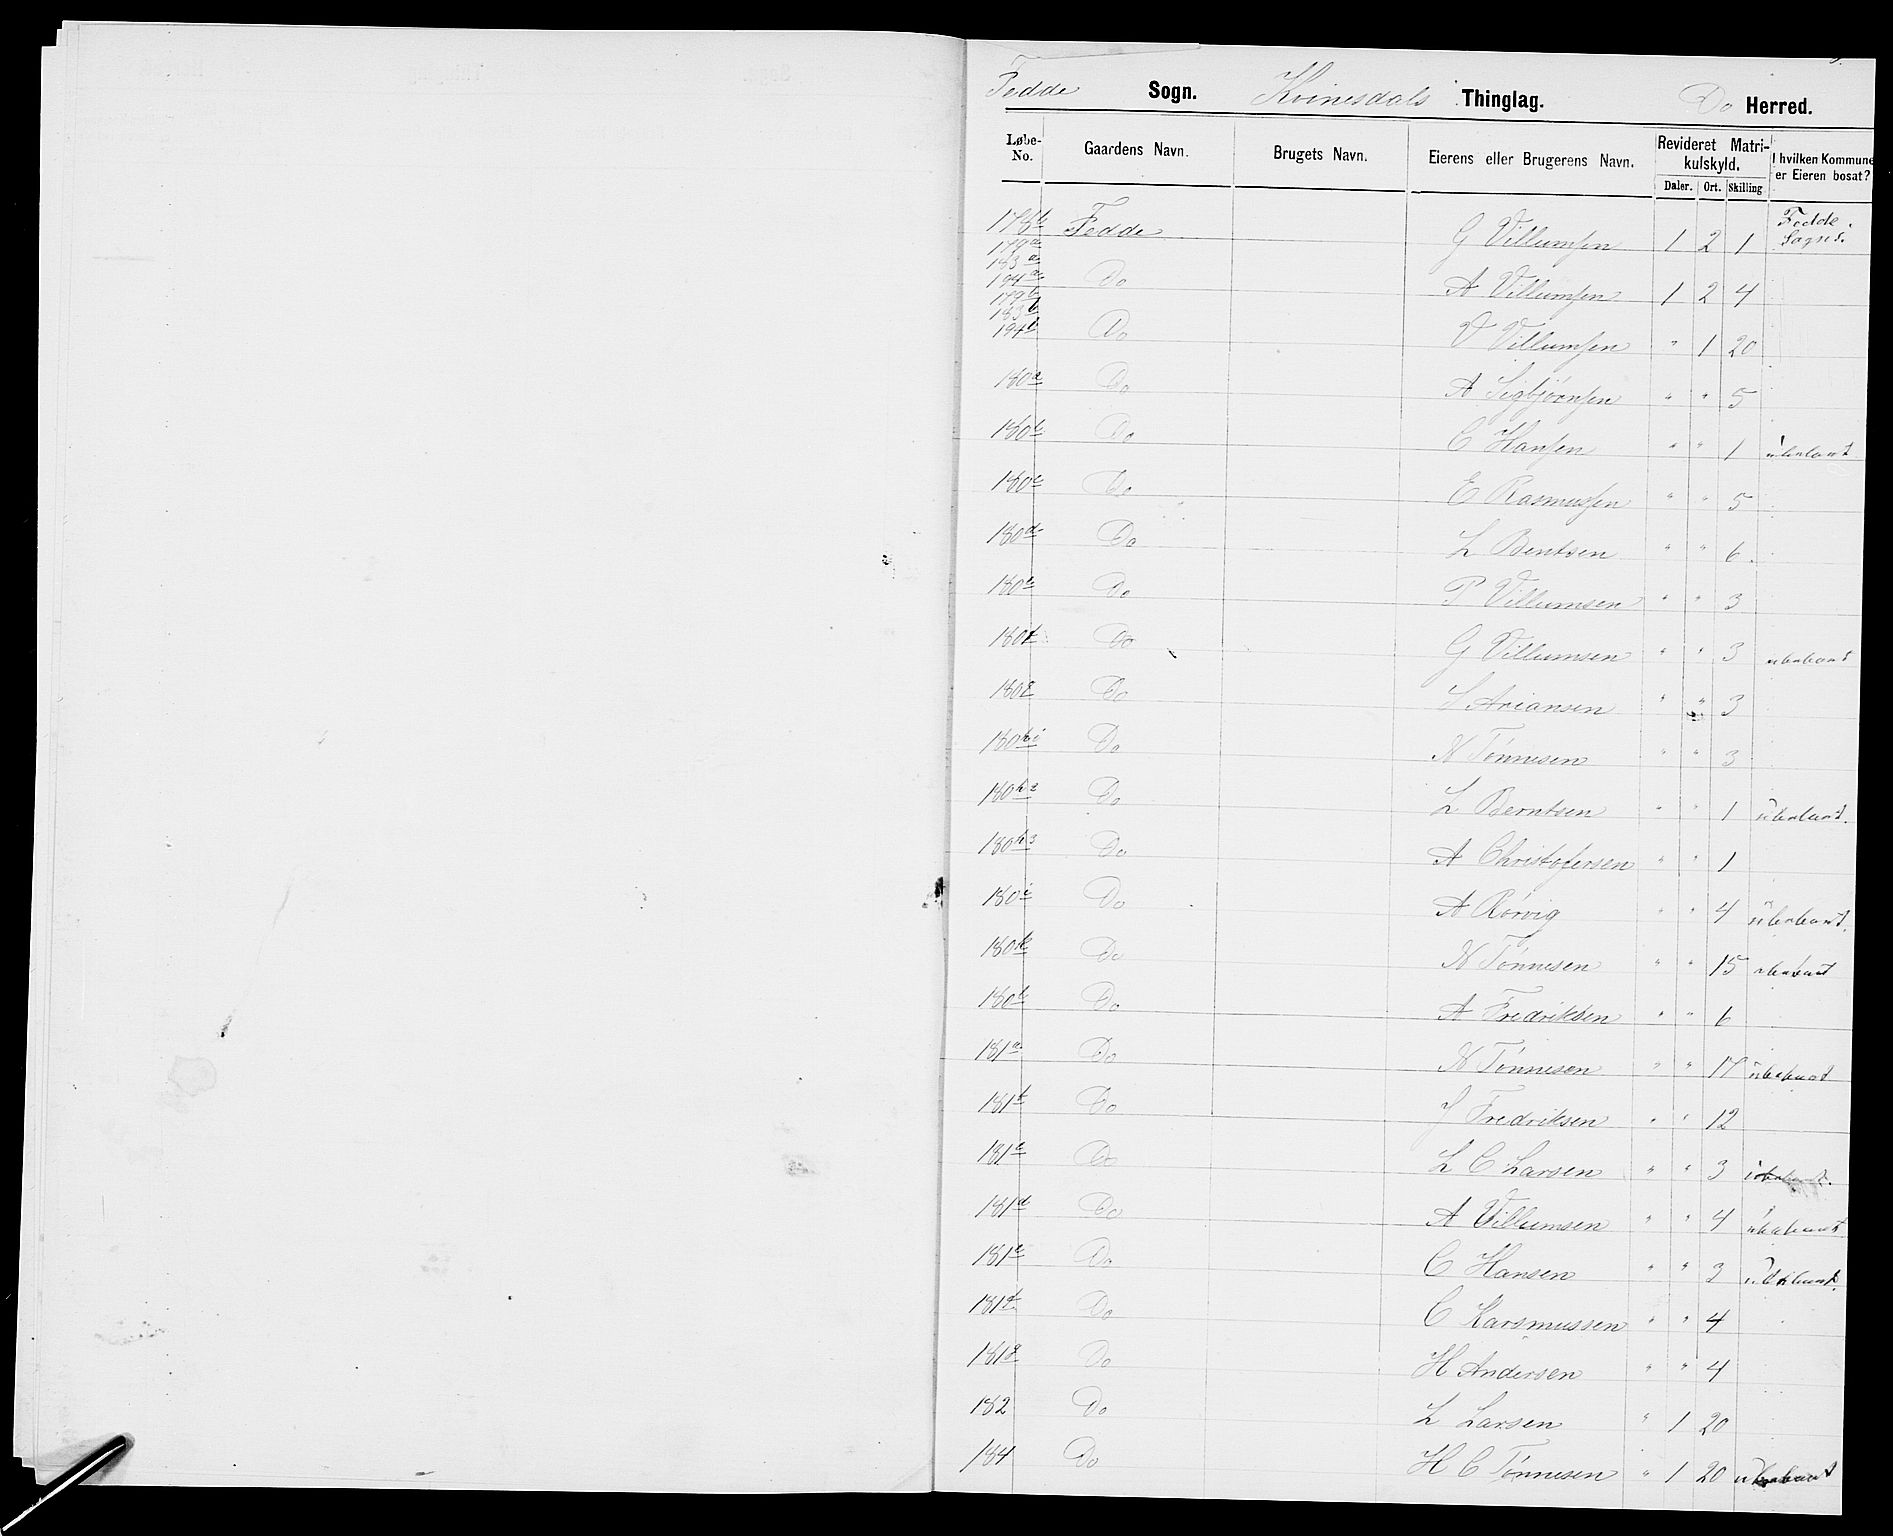 Fedde Sogn. Kvinesdals Thinglag. Do Herred.
Løbe-No. Gaardens Navn. Brugets Navn. Eierens eller Brugerens Navn. Revideret Matrikulskyld. Daler. Ort. Skilling I hvilken Kommune er Eieren bosat?
178b Fedde G Villumsen 1 2 1 Fedde Sogns.
179a
183a
194a Do A Villumsen 1 2 4
179b
183b
194b Do V Villumsen " 1 20
180a Do A Sigbjörnsen " " 5
180b Do C Hansen " " 1 ubebant
180c Do E Rasmussen " " 5
180d Do L Bentsen " " 6
180e Do P Villumsen " " 3
180f Do G Villumsen " " 3 ubebant
180g Do S Ariansen " " 3
180h1 Do N Tönnesen " " 3
180h2 Do L Berntsen " " 1 ubebant.
180h3 Do A Christofersen " " 1
180i Do A Rörvig " " 4 ubebant.
180k Do N Tönnesen " " 15 ubebant
180l Do A Fredriksen " " 6
181a Do N Tönnesen " " 17 ubebant
181b Do J Fredriksen " " 12
181c Do L C Larsen " " 3
181d Do A Villumsen " " 4 ubebant
181e Do C Hansen " " 3 ubebant.
181f Do C Rarsmussen " " 4
181g Do H Andersen " " 4
182 Do L Larsen " 1 20
184 Do H C Tönnesen " 1 20 ubebant